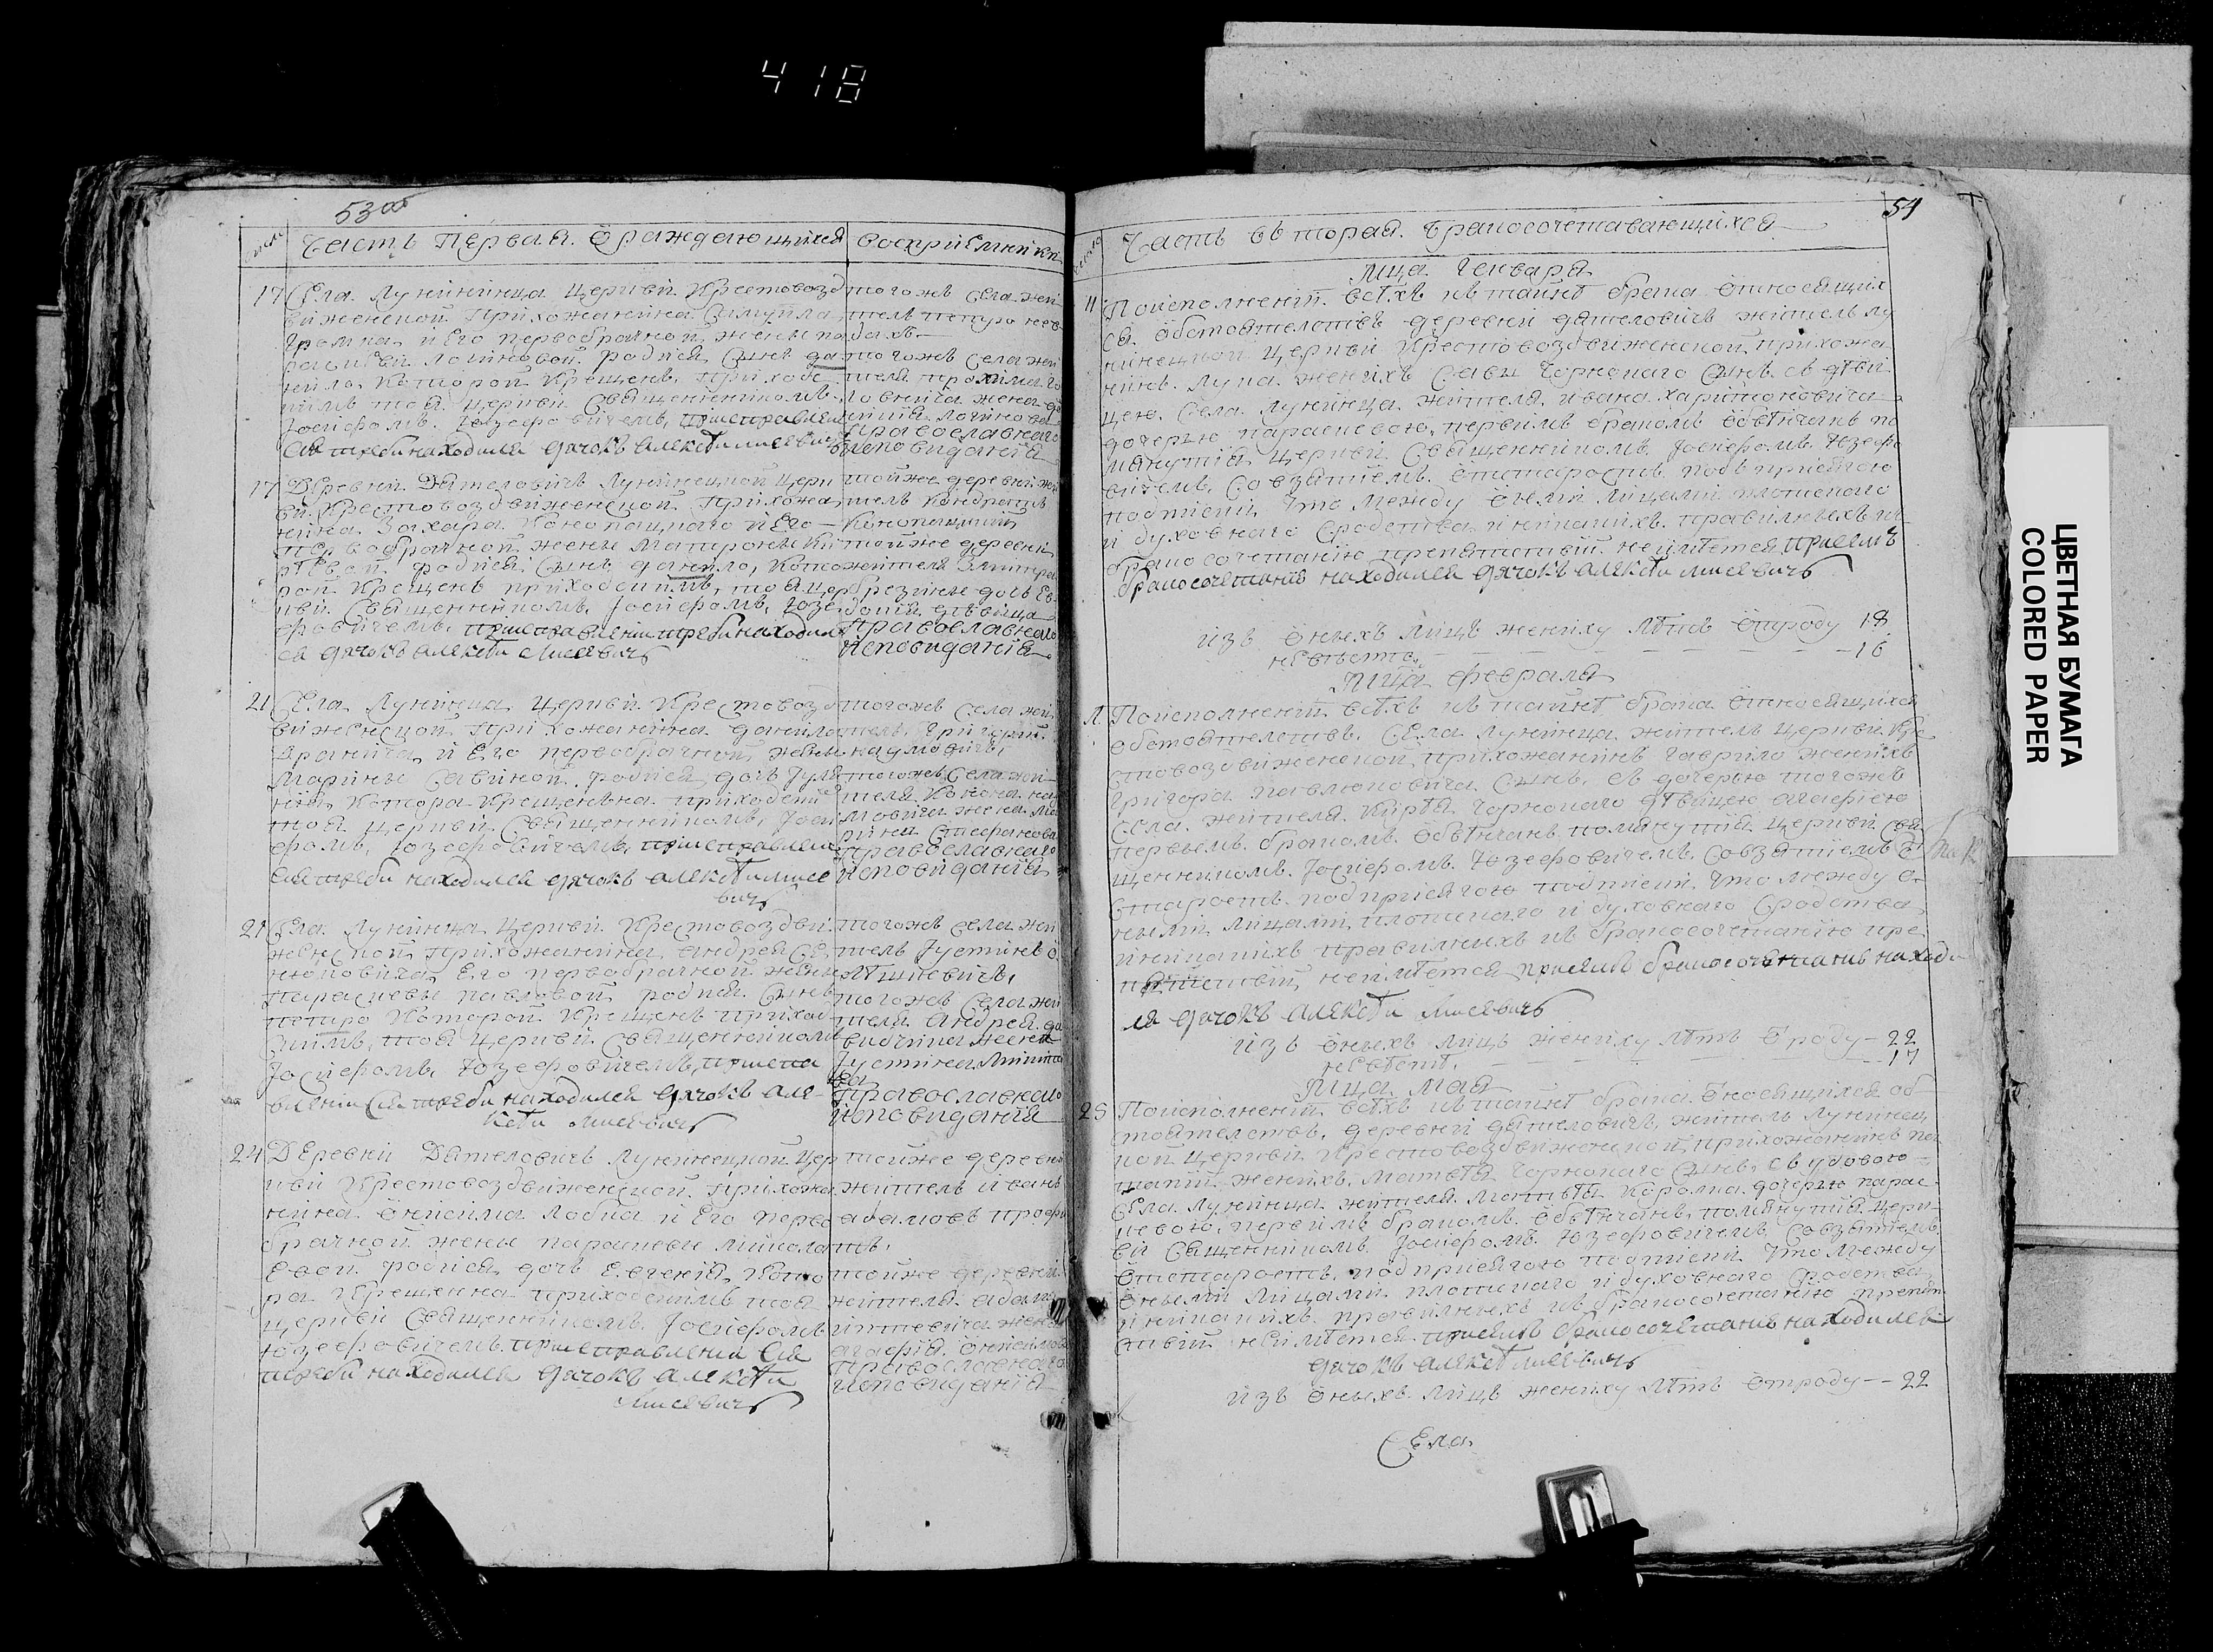 418
53 об
Часть Первая. О раждающихся
восприемники
17 Села Лунинца Церкви Крестовозд
виженской Прихожанина Самуила
Грома, и Его первобрачной жены па
родися Сынъ да
нило, Которой Крещенъ, Приход
тоя Церкви Священникомъ
Иосифомъ Юзефовичемъ, приисправлении
сея требы находился дячокъ Алексѣй Лисевичъ
тогожъ Села жи
тель петро
тогожъ Села жи
теля
жена
Православнаго
исповидания
17 Деревни Дятеловичъ Лунинецкой Церк
ви Крестовоздвиженской Прихожа
нина Захара Конопацкаго и Его
первобрачной жены Матроны
родися Сынъ данило, Кото
рой Крещенъ приходскимъ, тоя цер
кви Священникомъ, Иосифомъ, Юзе
фовичемъ, приисправлении требы находил
ся дячокъ Алексѣй Лисевичъ
тойже деревни жи
тель Кондратъ
Конопацкий
тойже деревни
жителя
дѣвица
Православнаго
исповидания
21 Села Лунинца Церкви Крестовозд
виженской Прихожанина данила
и Его первобрачной жены
Марины Савиной родися дочь Улия
ния, Котора Крещенъна приходски
тоя церкви Священникомъ, Иоси
фомъ, Юзефовичемъ, приисправлении
сея требы находился дячокъ Алексѣй Лисе
вичъ
тогожъ Села жи
тель Григорий
наумовичъ,
тогожъ Села жи
теля Конона нау
мовича жена Ма
рина Стефанова
Православнаго
исповидания
21 Села Лунинца Церкви Крестовоздви
женской Прихожанина Андрея Се
нюковича Его первобрачной жены
Параскевы павловой родися Сынъ
петро Которой Крещенъ приход
скимъ, тоя Церкви Священникомъ
Иосифомъ, Юзефовичемъ, прииспра
влении Сея требы находился дячокъ Але
ксѣй Лисевичъ
тогожъ села жи
тель Иустинъ
тогожъ Села жи
теля Андрея
жена
Иустина
ва
Православнаго
исповидания
24 Деревни Дятеловичъ Лунинецкой Цер
кви Крестовоздвиженской Прихожа
нина Онисима Лобка и Его перво
брачной жены параскевы миколa
евой родися дочь Евгения, Кото
ра Крещенна приходскимъ тоя
церкви Священникомъ Иосифомъ
Юзефовичемъ приисправлении Сея
требы находился дячокъ Алексѣй
Лисевичъ
тойже деревни
житель иванъ
адамовъ
тойже деревни
жителя адама
жена
агафия
Православнаго
исповидания
54
Часть вьторая. Бракосочетавающихся
Мца Генваря
11 Поисполнении всѣхъ къ тайнѣ брака относящих
ся Обстоятелствъ деревни дятеловичъ житель лу
нинецкой церкви Крестовоздвиженской прихожа
нинъ. Лука женихъ Савы Чорнокаго Сынъ съ дѣви
цею Села Лунинца жителя ивана харитоновича
дочерью параскевою, первимъ бракомъ обвѣнчанъ по
мянутия церкви Священникомъ Иосифомъ Юзефо
вичемъ, Совзятиемъ отстаростъ подъ присягою
подписки, Что между оными лицами плотскаго
и духовнаго Сродства, и никакихъ правилныхъ къ
бракосочетанию препятствий неимѣется присемъ
бракосочетание находился дячокъ Алексѣй Лисевичъ
изъ оныхъ лицъ жениху лѣтъ отроду 18
невѣстѣ 16
Мца февраля
1 Поисполнении всѣхъ къ тайнѣ брака относящихся
обстоятелствъ, Села Лунинца житель церкви Кре
стовоздвиженской прихожанинъ гаврило женихъ
Григора павлюковича Сынъ, съ дочерью тогожъ
Села жителя Чорнокаго дѣвицею агафиею
первымъ бракомъ обвѣнчанъ помянутия церкви Свя
щенникомъ Иосифомъ Юзефовичемъ, Совзятиемъ от
старостъ подприсягою подписки, Что между о
ными лицами плотскаго и духовнаго Сродства
иникакихъ правилныхъ къ бракосочетанию пре
пятствий неимѣется присемъ бракосочетание находи
ля дячокъ Алексѣй Лисевичъ
изъ оныхъ лицъ жениху лѣтъ отроду 22
невѣстѣ 17
Мца мая
Поисполнении всѣхъ къ тайнѣ брака относящихся об
стоятелствъ, деревни дятеловичъ, житель Лунинец
кой церкви Крестовоздвиженской прихожанинъ
женихъ, Матвѣя Чорнокаго Сынъ, съ удовою
Села Лунинца жителя Матвѣя Королка дочерью парас
кевою, первимъ бракомъ обвѣнчанъ, помянутия церк
ви Священникомъ Иосифомъ Юзефовичемъ, Совзятиемъ
отстаростъ, подприсягою подписки Что между
оными лицами плотскаго и духовнаго Сродства
иникакихъ правилныхъ къ бракосочетанию препят
ствий неимѣется присемъ бракосочетание находился
дячокъ Алексѣй Лисевичъ
изъ оныхъ лицъ жениху лѣтъ отроду 22
Села
ЦВЕТНАЯ БУМАГА
COLORED PAPER